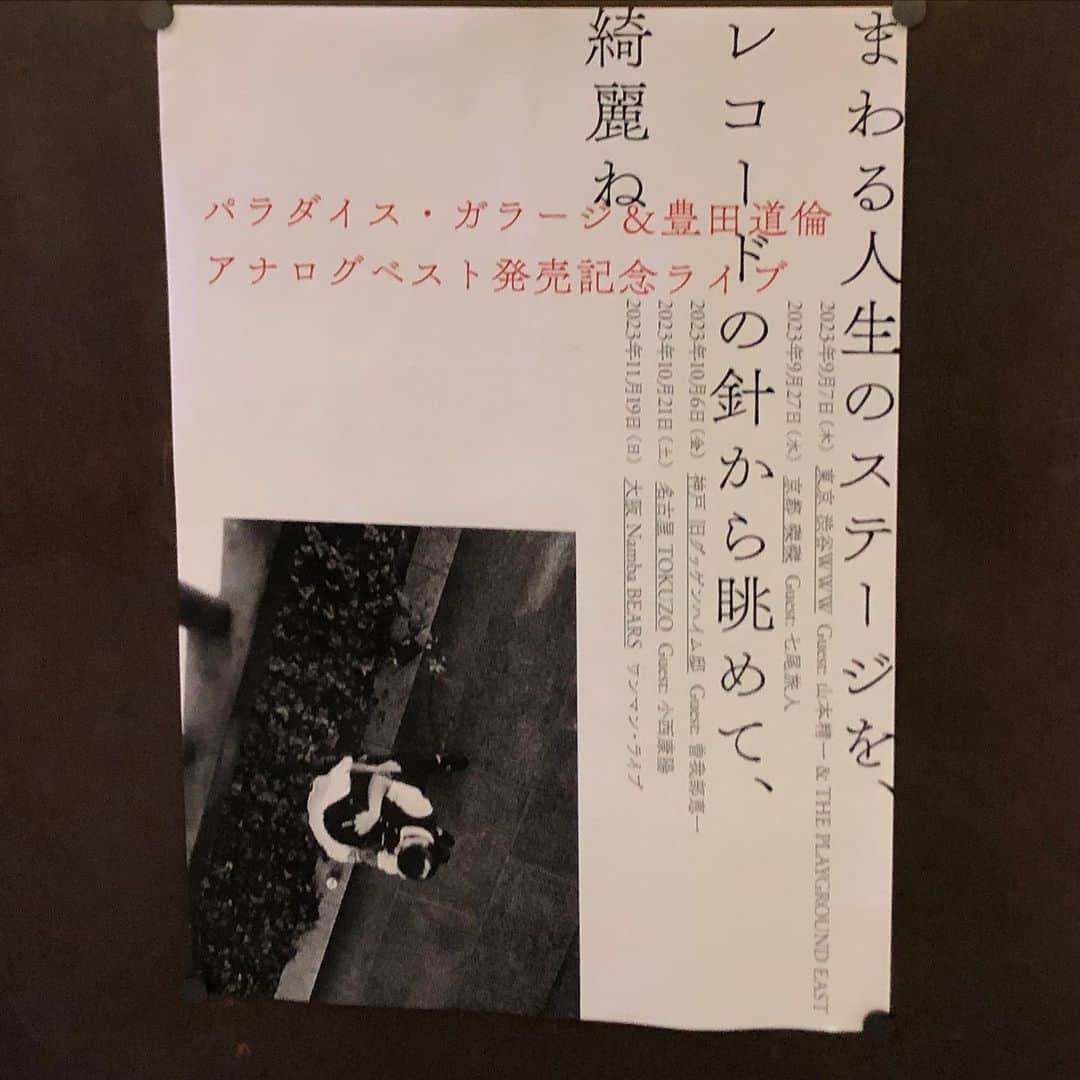 まわる人生のステージを、
レコードの針から眺めて、
綺麗ね
パラダイス・ガラージ&豊田道倫
アナログベスト発売記念ライブ
2023年9月7日(木) 東京 渋谷WWW Guest: 山本精一 & THE PLAYGROUND EAST
2023年9月27日(水) 京都 磔磔 Guest: 七尾旅人
2023年10月6日(金) 神戸 旧グッゲンハイム邸 Guest: 曽我部恵一
2023年10月21日(土) 名古屋 TOKUZO Guest: 小西康陽
2023年11月19日(日) 大阪 Namba BEARS ワンマン・ライブ